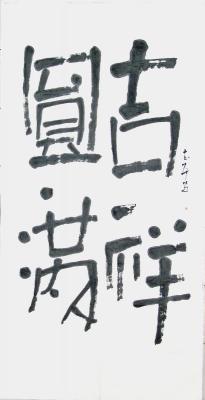 吉祥
圓滿